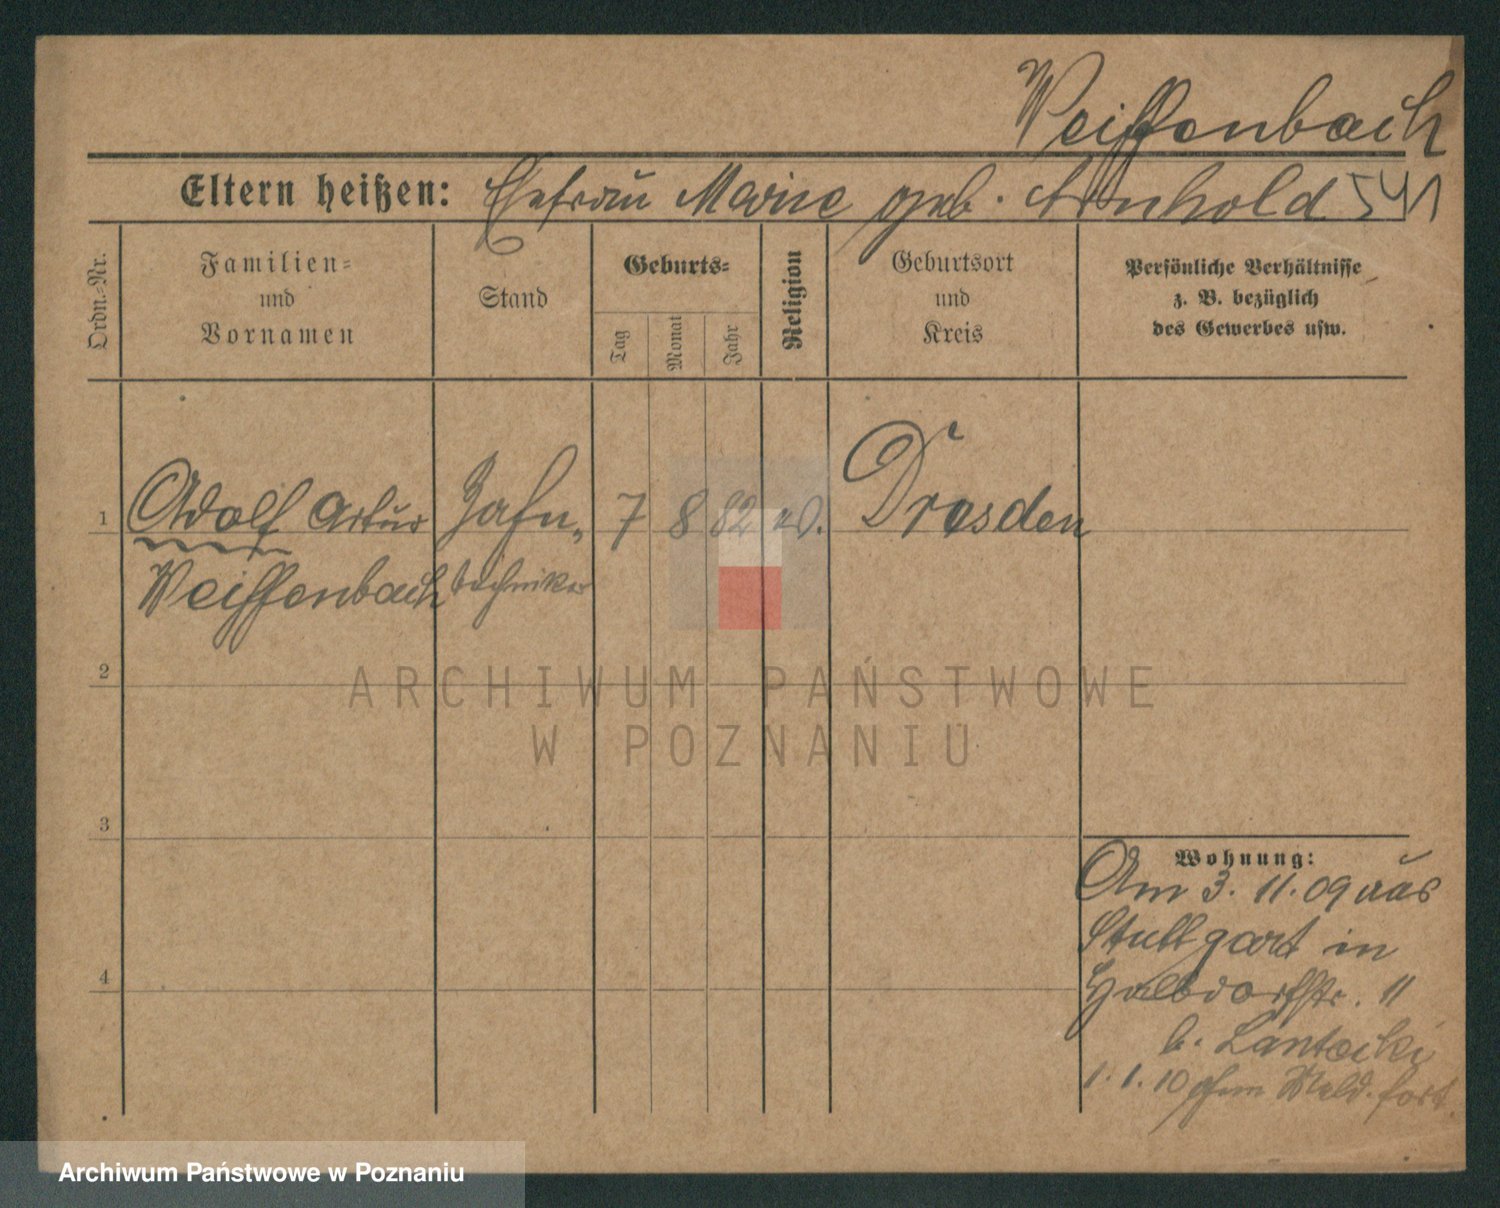 Weiffenbach
Eltern heißen: Ehefrau Marie geb. Arnhold 541
Ordn.-Nr.
Familien-
und
Vornamen
Stand
Geburts-
Tag
Monat
Jahr
Religion
Geburtsort
und
Kreis
Persönliche Verhältnisse
z. B. bezüglich
des Gewerbes usw.
1 Adolf Artur Zahn- 7 8 82 Dresden
Weiffenbach techniker
2
ARCHIWUM PAŃSTWOWE
W POZNANIU
3
Wohnung:
Am 3. 11. 09 aus
Stuttgart in
4
Halbdorfstr. 11
b. Lantocki
1. 1. 10 ohne Meld. fort.
Archiwum Państwowe w Poznaniu